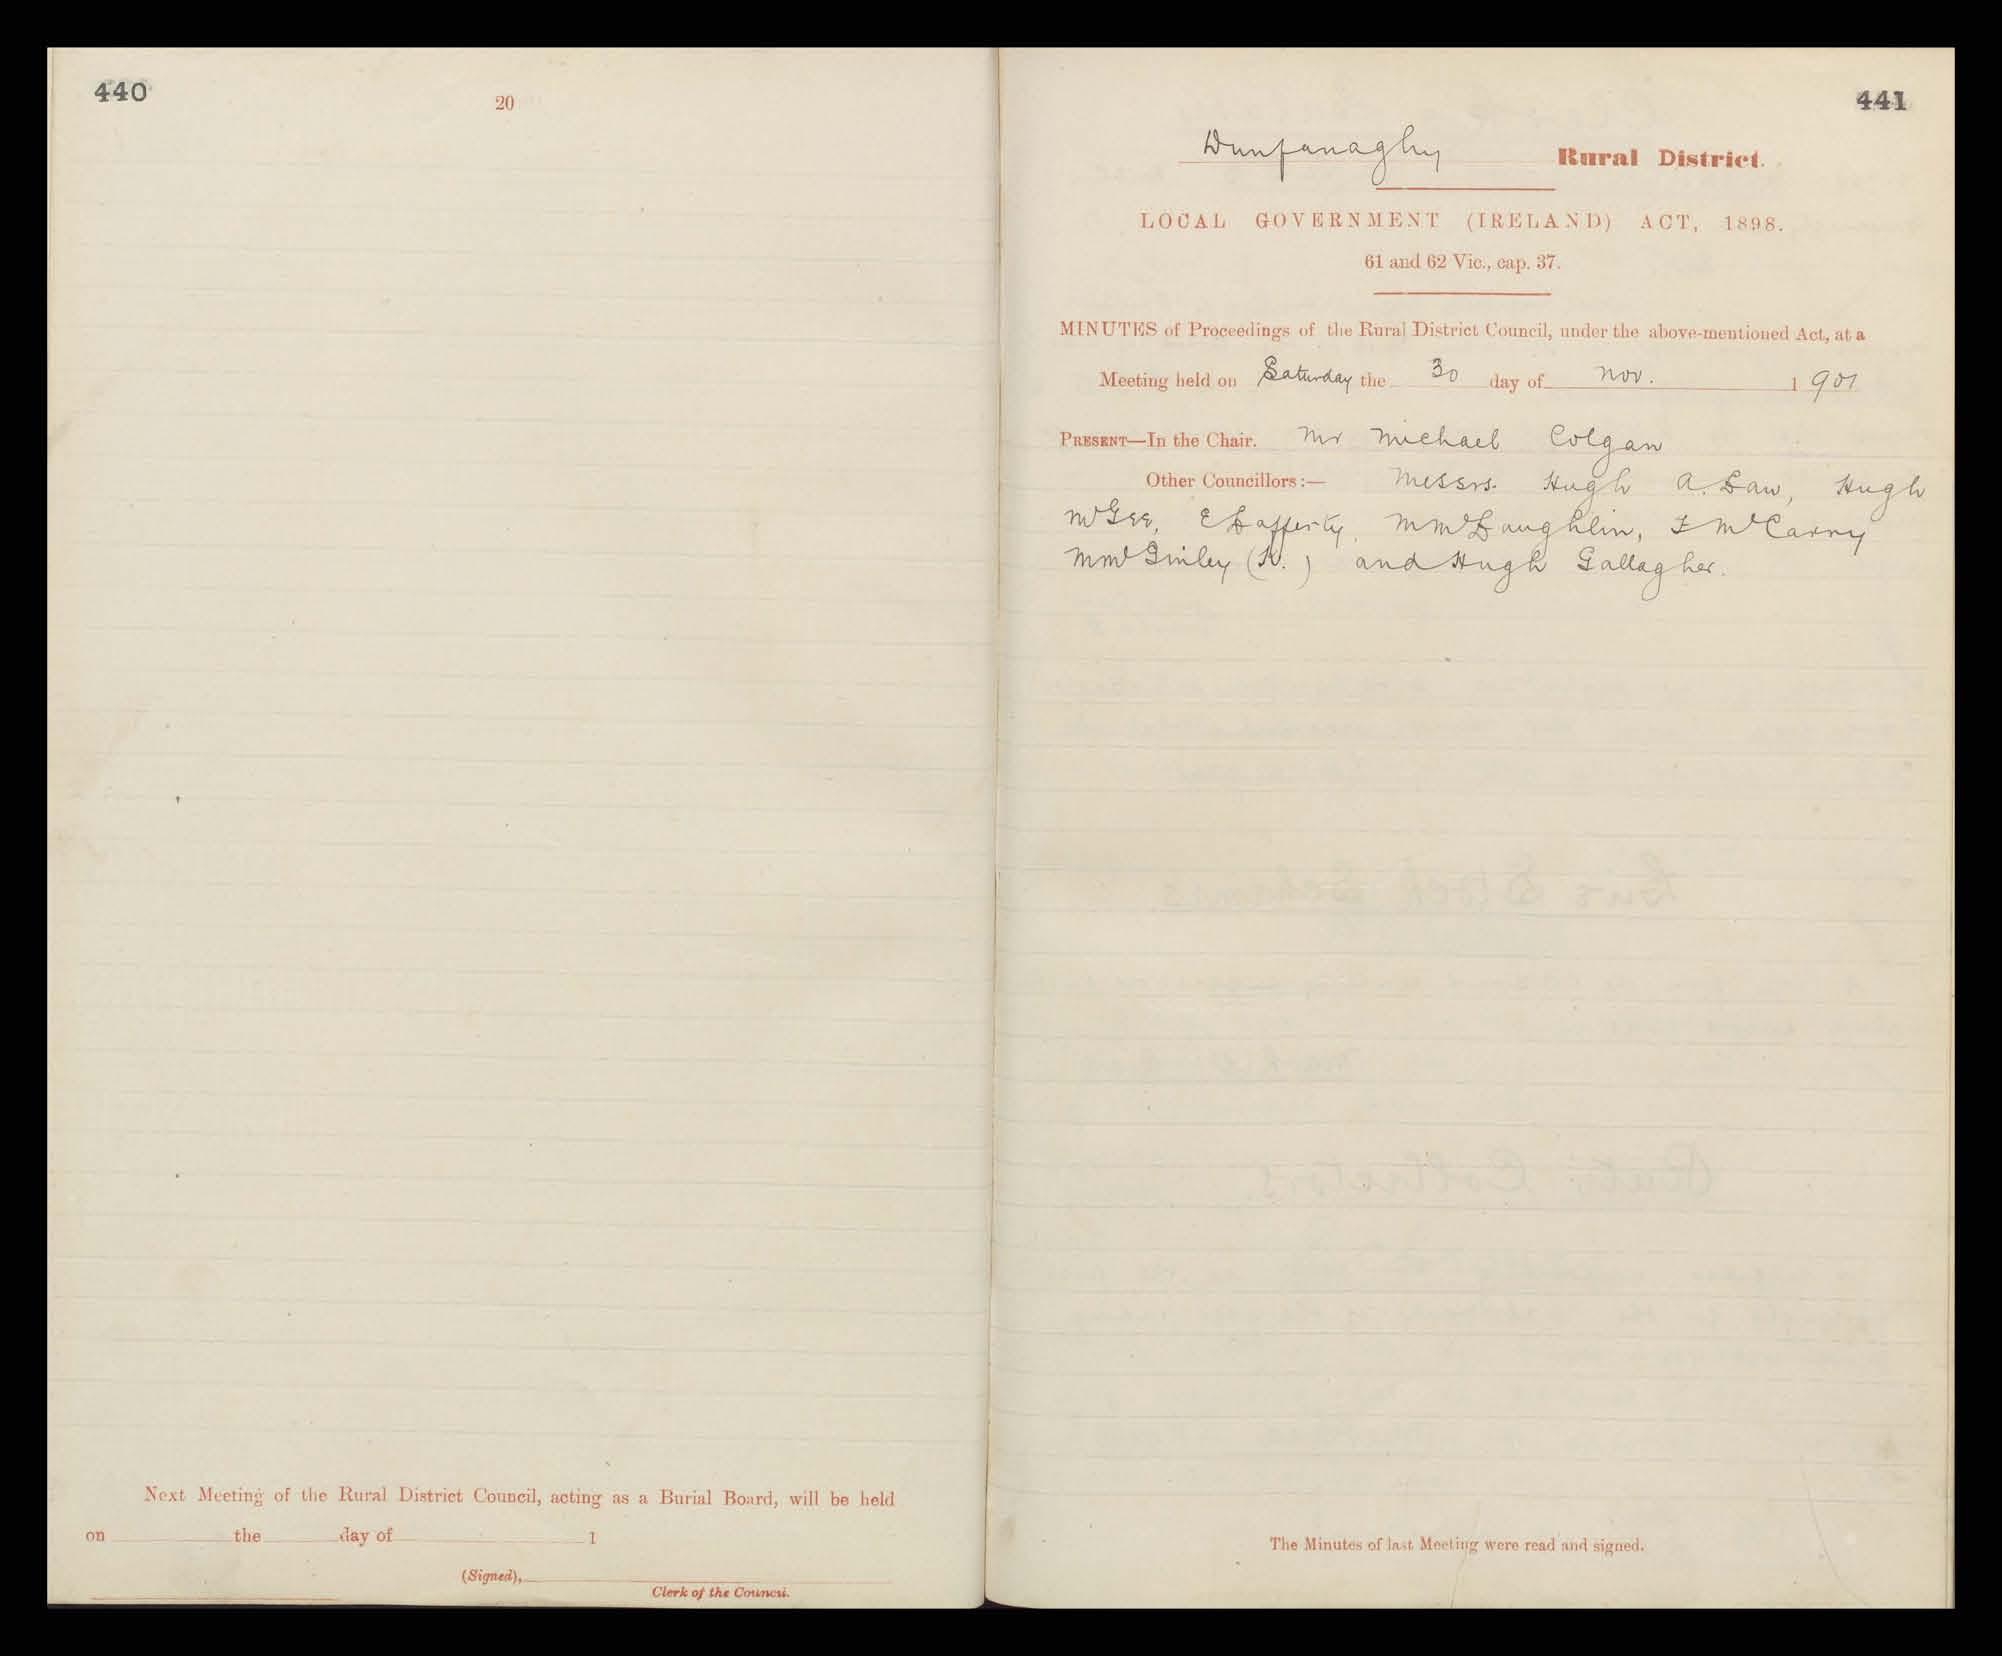 440
20
Next Meeting of the Rural District Council, acting as a Burial Board, will be held
on the day of 1
(Signed),
Clerk of the Council.
441
Dunfanaghy Rural District.
LOCAL GOVERNMENT (IRELAND) ACT, 1898.
61 and 62 Vic., cap. 37.
MINUTES of Proceedings of the Rural District Council, under the above-mentioned Act, at a
Meeting held on Saturday the 30 day of Nov. 1901
PRESENT—In the Chair. Mr Michael Colgan
Other Councillors:— Messrs. Hugh A. Law, Hugh
McGee, E Lafferty, M McLaughlin, F McCarry
M McGinley (K.) and Hugh Gallagher.
The Minutes of last Meeting were read and signed.